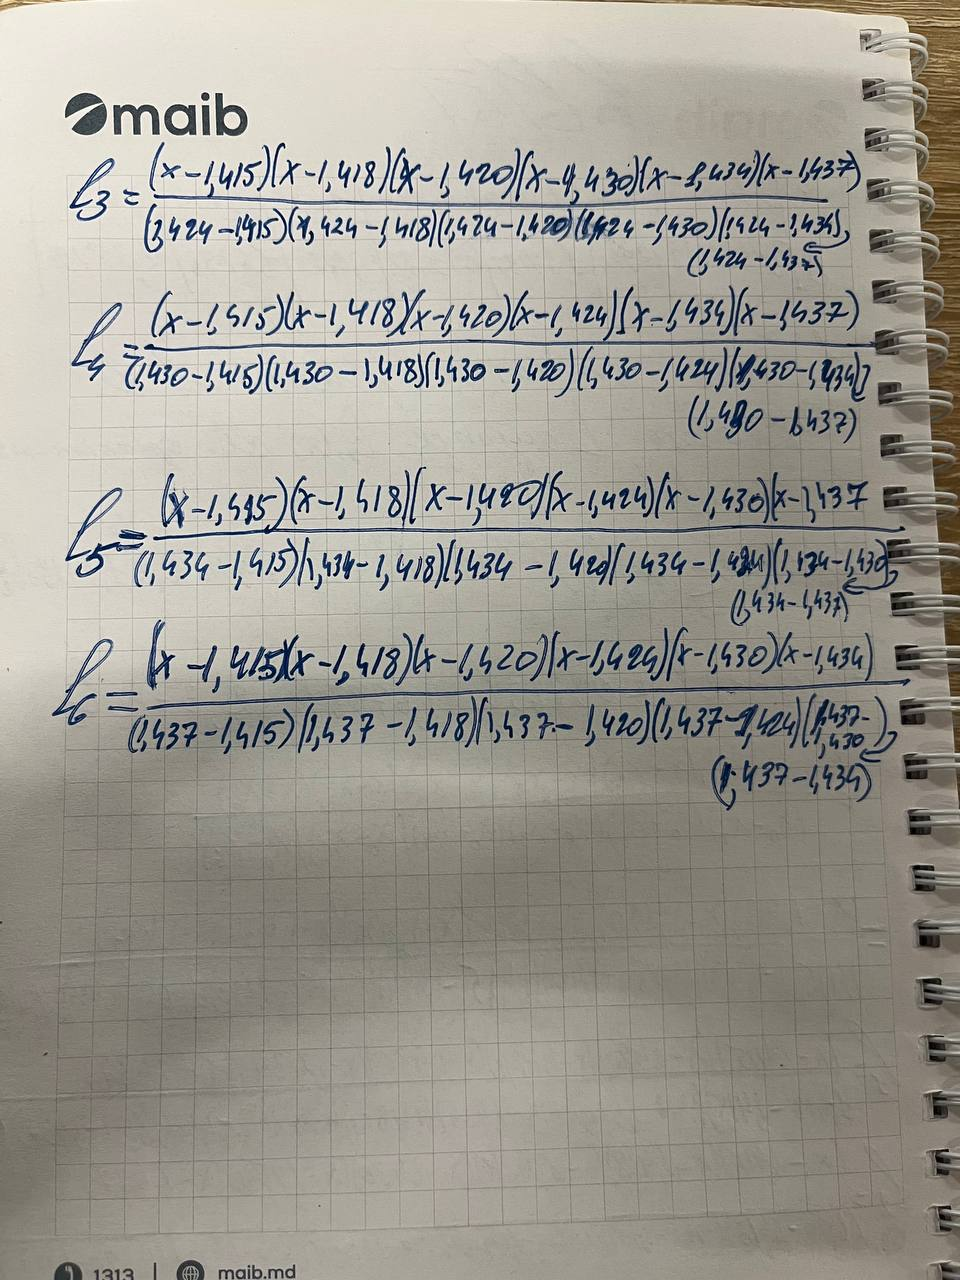 maib
l₃ = (x-1,415)(x-1,418)(x-1,420)(x-1,430)(x-1,434)(x-1,437)
(1,424-1,415)(1,424-1,418)(1,424-1,420)(1,424-1,430)(1,424-1,434)
(1,424-1,437)
l₄ = (x-1,415)(x-1,418)(x-1,420)(x-1,424)(x-1,434)(x-1,437)
(1,430-1,415)(1,430-1,418)(1,430-1,420)(1,430-1,424)(1,430-1,434)
(1,430-1,437)
l₅ = (x-1,415)(x-1,418)(x-1,420)(x-1,424)(x-1,430)(x-1,437
(1,434-1,415)(1,434-1,418)(1,434-1,420)(1,434-1,424)(1,434-1,430)
(1,434-1,437)
l₆ = (x-1,415)(x-1,418)(x-1,420)(x-1,424)(x-1,430)(x-1,434)
(1,437-1,415)(1,437-1,418)(1,437-1,420)(1,437-1,424)(1,437-
1,430)
(1,437-1,434)
1313 | maib.md